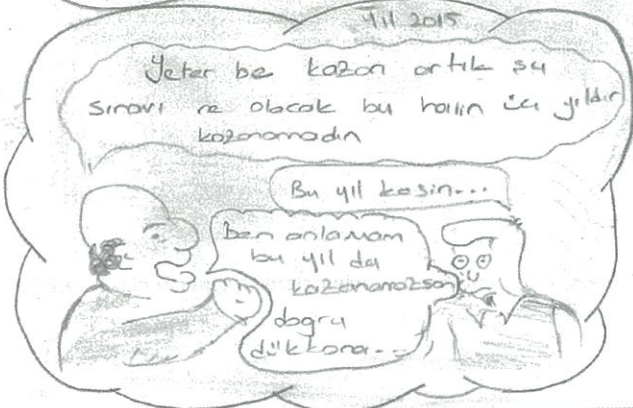 Yıl 2015
Yeter be kazan artık şu
sınavı ne olacak bu halin üç yıldır
kazanamadın
Bu yıl kesin...
Ben anlamam
bu yıl da
kazanamazsan
doğru
dükkana...